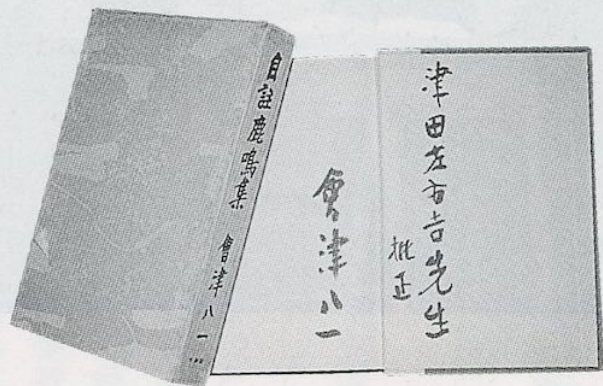 自註鹿鳴集　會津八一
津田左右吉先生
批正
會津八一